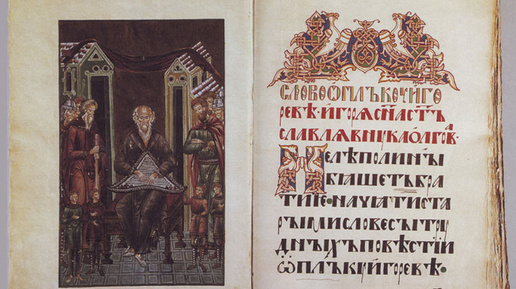 СЛОВОѠПЛЪКОУИГО
РЕВѢ·ИГОРѦСЫНАСТЪ
СЛАВЛѦВНꙋКАОЛГОВ
НЕЛѢПОЛИНЫ
БѦШЕТЪБРА
ТИЕ·НАЧАТИСТА
РЫМИСЛОВЕСЫТРꙋ
ДНЫХЪПОВѢСТИИ
ѠПЛЪКꙋИГОРЕВѢ·